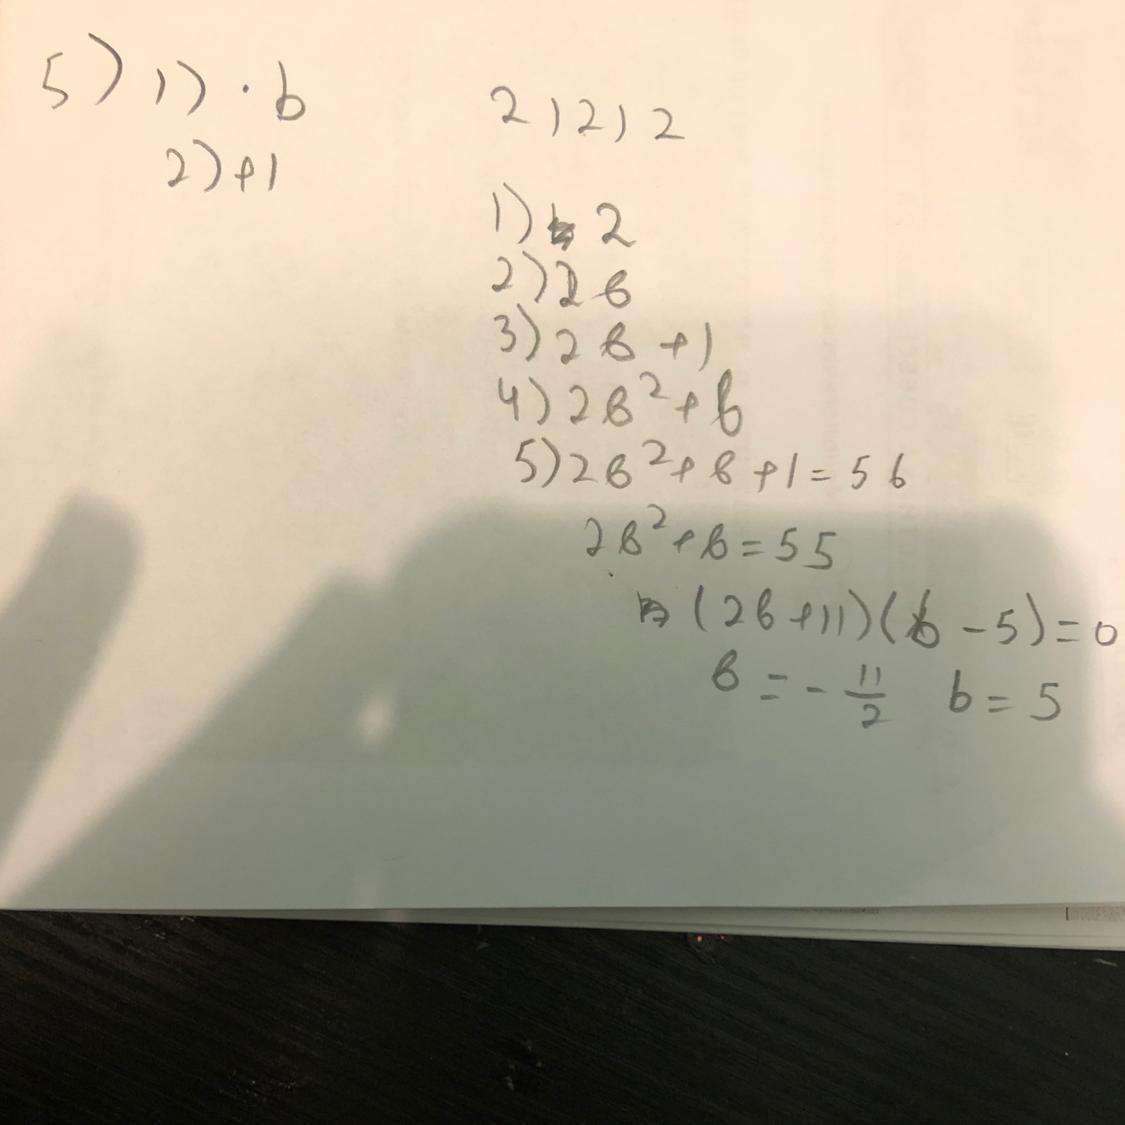 5) 1) · b
2) +1
21212
1) 2
2) 2b
3) 2b + 1
4) 2b² + b
5) 2b² + b + 1 = 56
2b² + b = 55
(2b + 11)(b - 5) = 0
b = - 11/2 b = 5